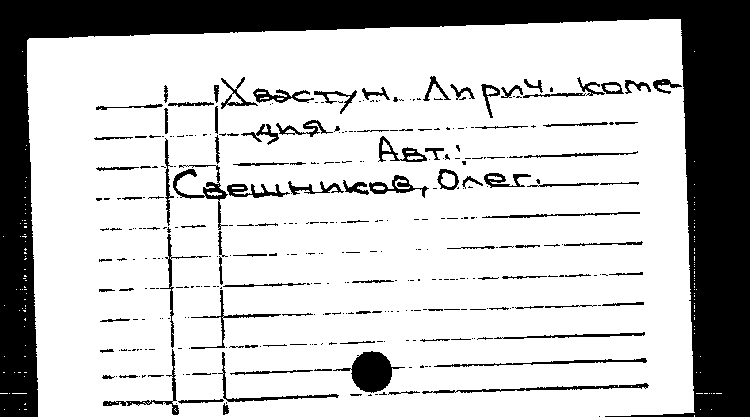 Хвастун. Лирич. коме-
дия.
Авт.:
Свешников, Олег.